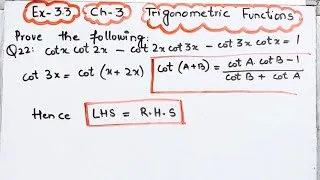 Ex-3.3 Ch-3 Trigonometric Functions
Prove the following:
Q22: cotx cot 2x - cot 2x cot 3x - cot 3x cotx = 1
cot 3x = cot (x + 2x) cot (A+B) = cot A cot B - 1 / cot B + cot A
Hence LHS = R.H.S